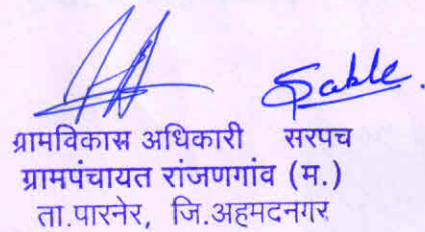 Sable.
ग्रामविकास अधिकारी सरपच
ग्रामपंचायत रांजणगांव (म.)
ता.पारनेर, जि.अहमदनगर